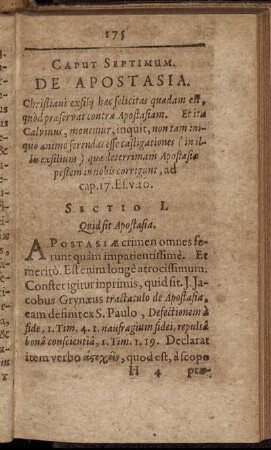 175
CAPUT SEPTIMUM.
DE APOSTASIA.
Christiani exsilij hæc felicitas quædam est,
quòd præservat contra Apostasiam. Et ita
Calvinus, monemur, inquit, non tam ini-
quo animo ferendas esse castigationes (in il-
lis exsilium) quæ deterrimam Apostasiæ
pestem in nobis corrigunt, ad
cap. 17. Es. v. 10.
SECTIO I.
Quid sit Apostasia.
APOSTASIÆ crimen omnes fe-
runt quàm impatientissimè. Et
meritò. Est enim longè atrocissimum.
Constet igitur inprimis, quid sit. J. Ja-
cobus Grynæus tractatulo de Apostasia,
eam definit ex S. Paulo, Defectionem à
fide, 1. Tim. 4. 1. naufragium fidei, repulsâ
bonâ conscientiâ, 1. Tim. 1. 19. Declarat
item verbo ἀστοχεῖν, quod est, à scopo
H 4 præ-